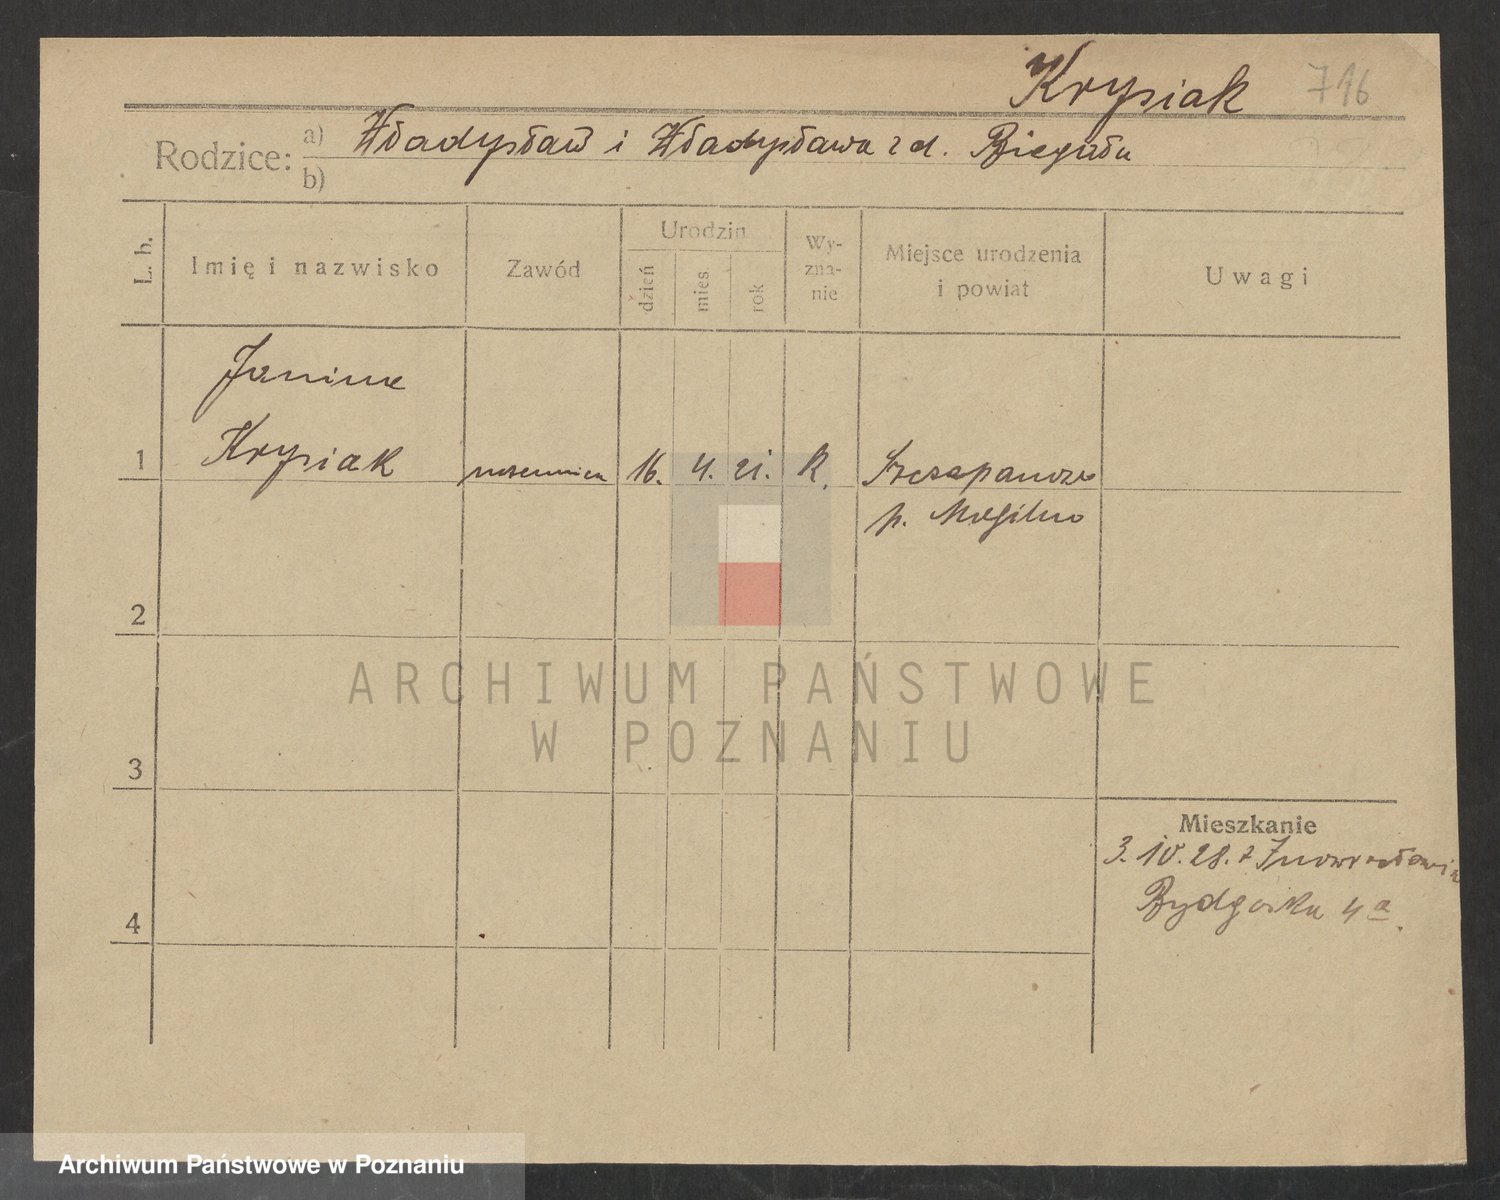 Krysiak 716
Rodzice: a) Władysław i Władysława z d. Bieguła
b)
L. b.
Imię i nazwisko
Zawód
Urodzin
dzień
mies.
rok
Wy-
zna-
nie
Miejsce urodzenia
i powiat
Uwagi
Janina
1 Krysiak uczennica 16. 4. 21. k. Szczepanowo
p. Mogilno
2
ARCHIWUM PAŃSTWOWE
W POZNANIU
3
Mieszkanie
3. 10. 28. z Inowrocławia
Bydgoska 4a.
4
Archiwum Państwowe w Poznaniu